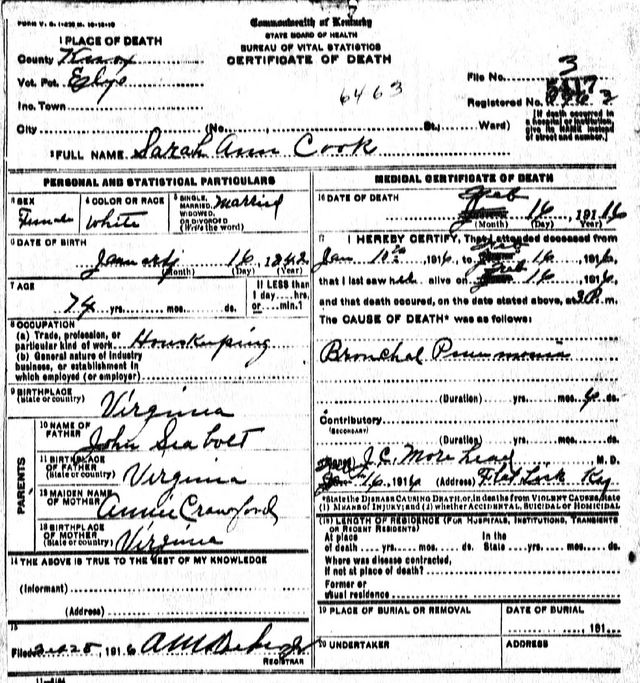 FORM V. S.
Commonwealth of Kentucky
STATE BOARD OF HEALTH
BUREAU OF VITAL STATISTICS
CERTIFICATE OF DEATH
1 PLACE OF DEATH
County Knox
Vot. Pct.
Inc. Town
City (No. St., Ward)
6463
File No. 3
Registered No.
[If death occurred in a hospital or institution, give its NAME instead of street and number.]
2 FULL NAME Sarah Ann Cook
PERSONAL AND STATISTICAL PARTICULARS
3 SEX Female
4 COLOR OR RACE White
5 SINGLE, MARRIED, WIDOWED, OR DIVORCED (Write the word) Married
6 DATE OF BIRTH
January 16, 1842
(Month) (Day) (Year)
7 AGE
74 yrs. mos. ds.
If LESS than 1 day....hrs, or....min.?
8 OCCUPATION
(a) Trade, profession, or
particular kind of work Housekeeping
(b) General nature of industry
business, or establishment in
which employed (or employer)
9 BIRTHPLACE
(State or country) Virginia
PARENTS
10 NAME OF
FATHER John Seabolt
11 BIRTHPLACE
OF FATHER
(State or country) Virginia
12 MAIDEN NAME
OF MOTHER Annie Crawford
13 BIRTHPLACE
OF MOTHER
(State or country) Virginia
14 THE ABOVE IS TRUE TO THE BEST OF MY KNOWLEDGE
(Informant)
(Address)
15
Filed 191 6
REGISTRAR
MEDICAL CERTIFICATE OF DEATH
16 DATE OF DEATH
Feb 16, 191 16
(Month) (Day) (Year)
17 I HEREBY CERTIFY, That I attended deceased from
Jan 10, 1916, to Feb 16 1916,
that I last saw h alive on Feb 16, 1916,
and that death occured, on the date stated above, at P. m.
The CAUSE OF DEATH* was as follows:
Bronchal Pneumonia
(Duration) yrs. mos. ds.
Contributory
(SECONDARY)
(Duration) yrs. mos. ds.
(Signed) J. C. M. D.
16, 1916 (Address) Flat Lick Ky
*State the DISEASE CAUSING DEATH, or, in deaths from VIOLENT CAUSES, state
(1) MEANS OF INJURY; and (2) whether ACCIDENTAL, SUICIDAL OR HOMICIDAL
(18) LENGTH OF RESIDENCE (FOR HOSPITALS, INSTITUTIONS, TRANSIENTS
OR RECENT RESIDENTS)
At place In the
of death yrs. mos. ds. State yrs. mos. ds.
Where was disease contracted,
if not at place of death?
Former or
usual residence
19 PLACE OF BURIAL OR REMOVAL
DATE OF BURIAL
191
20 UNDERTAKER
ADDRESS